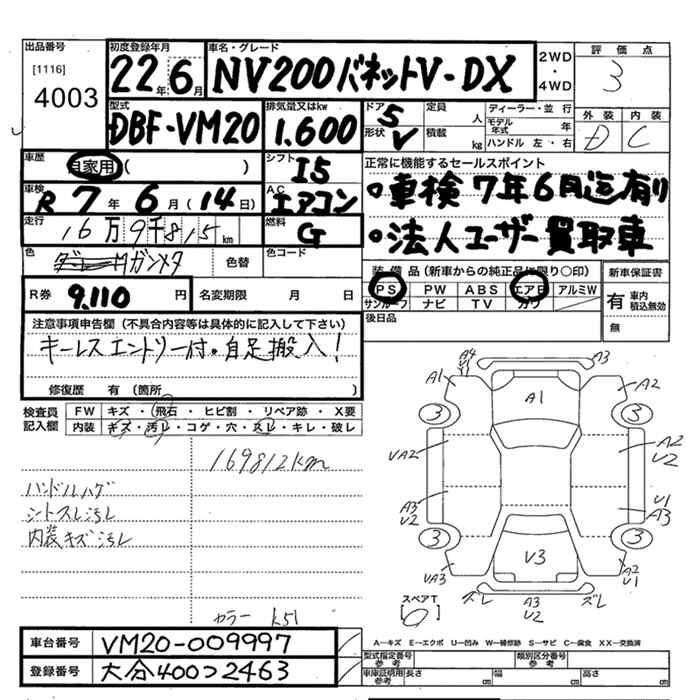 出品番号
[1116]
4003
初度登録年月
22年6月
車名・グレード
NV200バネットV-DX
2WD
・
4WD
評価点
3
型式
DBF-VM20
排気量又はkw
1.600
ドア 5
形状 V
定員 人
積載 kg
ディーラー・並行
モデル年式 年
ハンドル 左・右
外装 内装
D C
車歴
自家用 ( )
シフト
I5
正常に機能するセールスポイント
車検
R7年6月(14日)
AC
エアコン
・車検7年6月迄有り
走行
16万9千815km
燃料
G
・法人ユーザー買取車
色
ガンメタ
色替
色コード
装備品(新車からの純正品に限り〇印)
新車保証書
PS PW ABS エアB アルミW
サンルーフ ナビ TV カワ
有 車内積込無効
無
R券 9,110円
名変期限 月 日
後日品
注意事項申告欄(不具合内容等は具体的に記入して下さい)
キーレスエントリー付・自走搬入!
修復歴 有(箇所 )
検査員
記入欄
FW キズ・飛石・ヒビ割・リペア跡・X要
内装 キズ・汚レ・コゲ・穴・スレ・キレ・破レ
169812km
ハンドルハゲ
シートスレ汚レ
内装キズ汚レ
カラー K51
A4
Y1
A3
A1
A1
A2
3
3
VA2
A2
V2
A3
V2
V1
A3
3
3
VA3
V3
A2
V1
スペアT
ズレ
A3
V2
ズレ
車台番号 VM20-009997
登録番号 大分400つ2463
A―キズ E―エクボ U―凹み W―補修跡 S―サビ C―腐食 XX―交換済
型式指定番号 参考
類別区分番号 参考
車庫証明用 参考
長さ cm
幅 cm
高さ cm